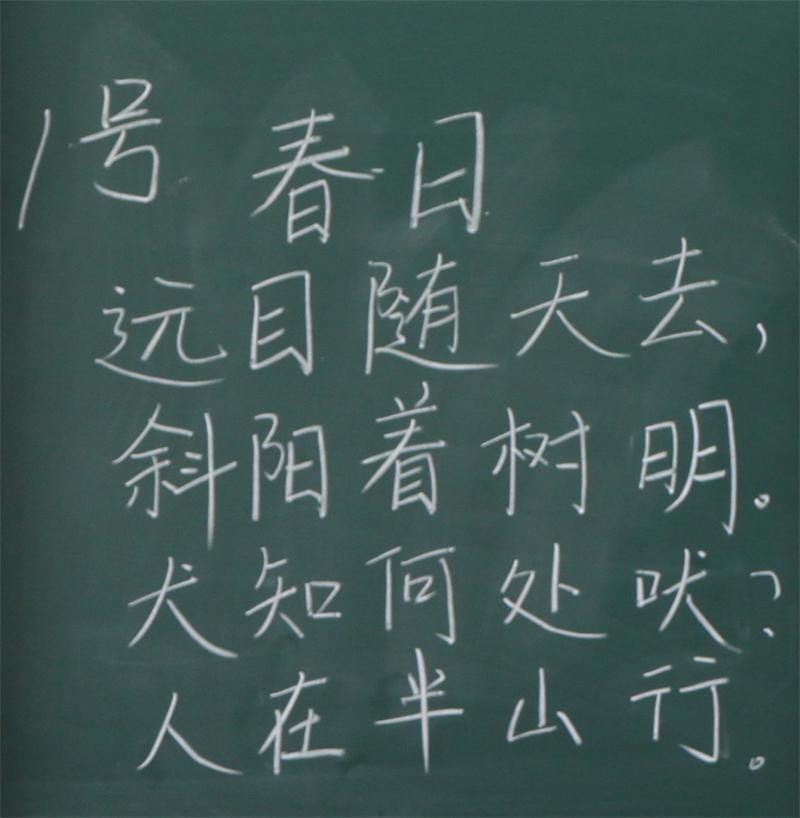 1号 春日
远目随天去,
斜阳着树明。
犬知何处吠?
人在半山行。